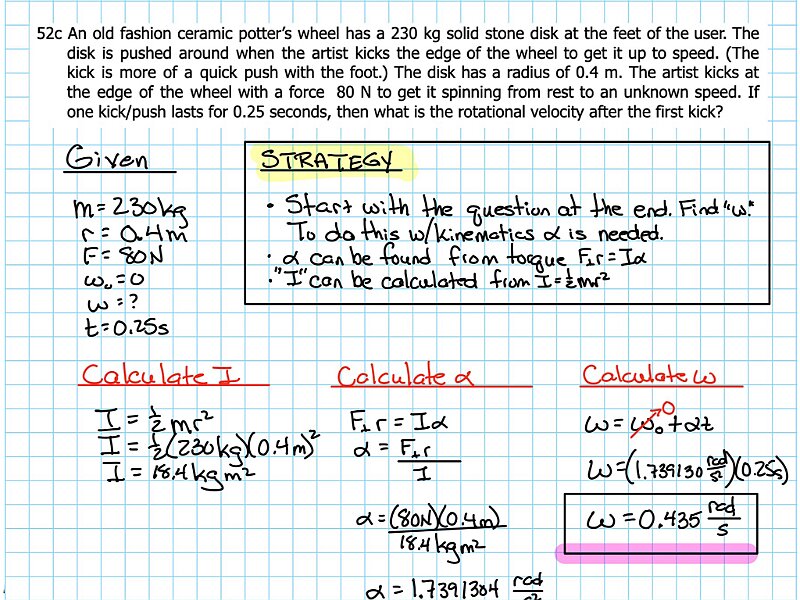 52c An old fashion ceramic potter's wheel has a 230 kg solid stone disk at the feet of the user. The
disk is pushed around when the artist kicks the edge of the wheel to get it up to speed. (The
kick is more of a quick push with the foot.) The disk has a radius of 0.4 m. The artist kicks at
the edge of the wheel with a force 80 N to get it spinning from rest to an unknown speed. If
one kick/push lasts for 0.25 seconds, then what is the rotational velocity after the first kick?
Given
m=230kg
r=0.4m
F=80N
ω₀=0
ω=?
t=0.25s
STRATEGY
• Start with the question at the end. Find "ω."
To do this w/kinematics α is needed.
• α can be found from torque F⊥r=Iα
• "I" can be calculated from I=½mr²
Calculate I
I = ½mr²
I = ½(230kg)(0.4m)²
I = 18.4kgm²
Calculate α
F⊥r = Iα
α = F⊥r/I
α = (80N)(0.4m)/18.4kgm²
α = 1.7391304 rad/s²
Calculate ω
ω = ω₀→0 + αt
ω=(1.739130 rad/s²)(0.25s)
ω = 0.435 rad/s